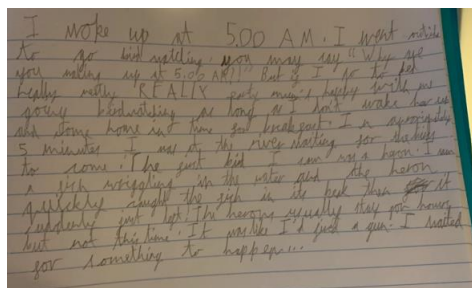 I woke up at 5.00 A.M. I went outside
to go bird watching. you may say "Why are
you waking up at 5.00 AM!?" But if I go to bed
really really REALLY early mum's happy with me
going birdwatching as long as I don't wake her up
and come home in time for breakfast. In approximately
5 minutes I was at the river waiting for the birds
to come. The first bird I saw was a heron. I saw
a fish wriggling in the water and the heron
quickly caught the fish in its beak then it
suddenly just left! The herons usually stay for hours
but not this time. It was like I'd fired a gun. I waited
for something to happen...